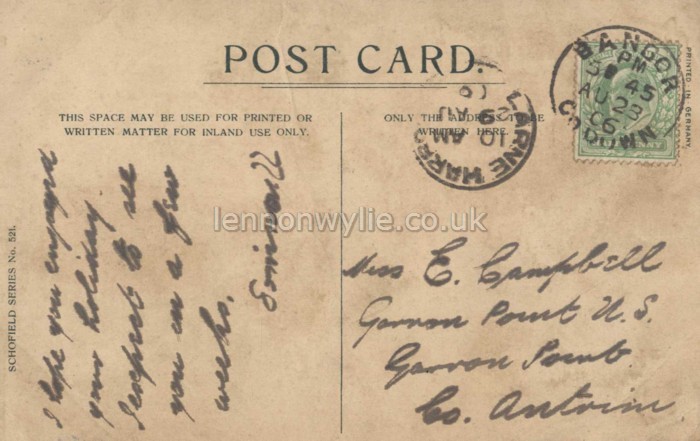 POST CARD.
THIS SPACE MAY BE USED FOR PRINTED OR
WRITTEN MATTER FOR INLAND USE ONLY.
ONLY THE ADDRESS TO BE
WRITTEN HERE.
PRINTED IN GERMANY
SCHOFIELD SERIES No. 521.
BANGOR
PM
45
AU 23
06
CO DOWN
LARNE HARB
10 AM
AU
lennonwylie.co.uk
I hope you enjoyed
your holiday.
I expect to see
you in a few
weeks.
Miss E. Campbell
Garron Point U.S.
Garron Point
Co. Antrim